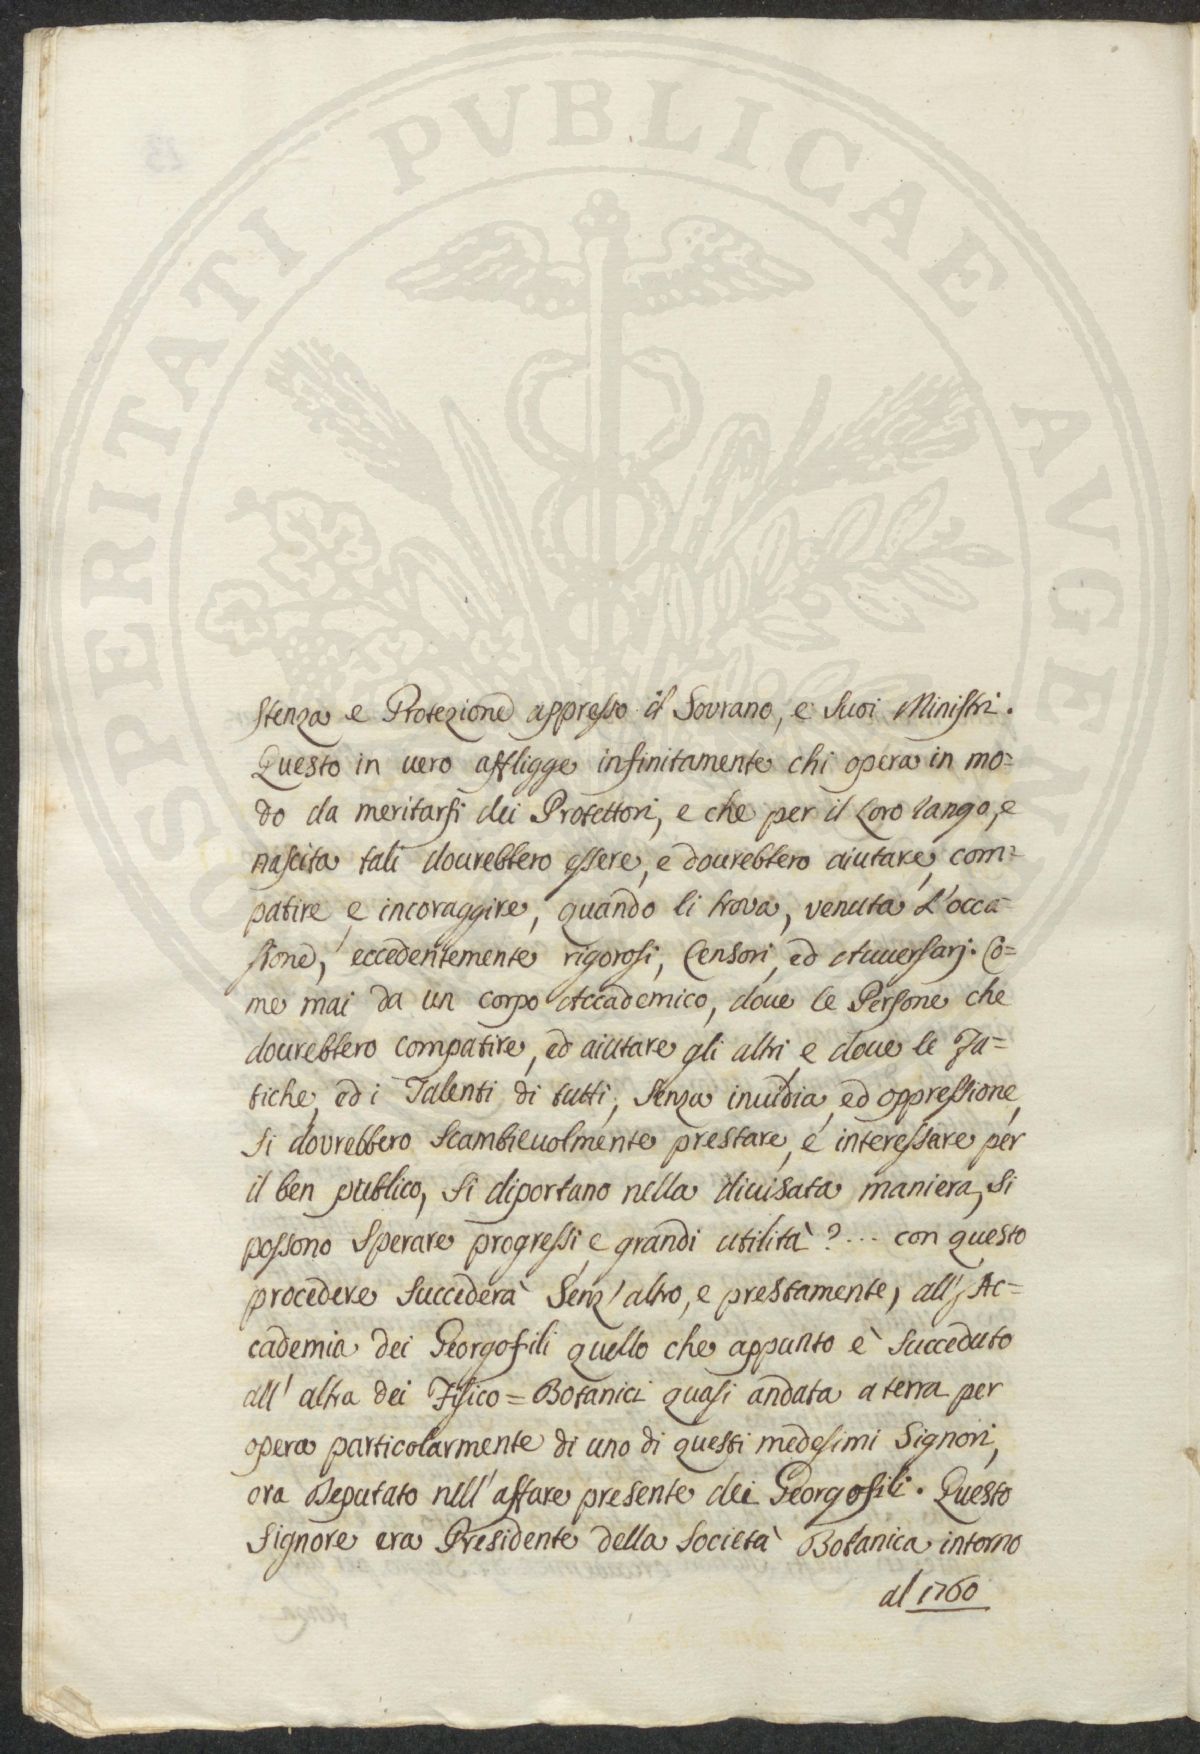 PROSPERITATI PVBLICAE AVGENDAE
stenza e Protezione appresso il Sovrano, e suoi Ministri.
Questo in vero affligge infinitamente chi opera in mo=
do da meritarsi dei Protettori, e che per il loro rango, e
nascita tali dovrebbero essere, e dovrebbero aiutare, com=
patire, e incoraggire, quando li trova, venuta l'occa=
sione, eccedentemente rigorosi, Censori, ed Avversarj. Co=
me mai da un corpo Accademico, dove le Persone che
dovrebbero compatire, ed aiutare gli altri, e dove le Fa=
tiche, ed i Talenti di tutti, senza invidia, ed oppressione,
si dovrebbero scambievolmente prestare, e interessare per
il ben publico, si diportano nella divisata maniera, si
possono sperare progressi, e grandi utilità?... con questo
procedere succederà senz'altro, e prestamente, all'Ac=
cademia dei Georgofili quello che appunto è succeduto
all'altra dei Fisico=Botanici quasi andata a terra per
opera particolarmente di uno di questi medesimi Signori,
ora Deputato nell'affare presente dei Georgofili. Questo
Signore era Presidente della Società Botanica intorno
al 1760